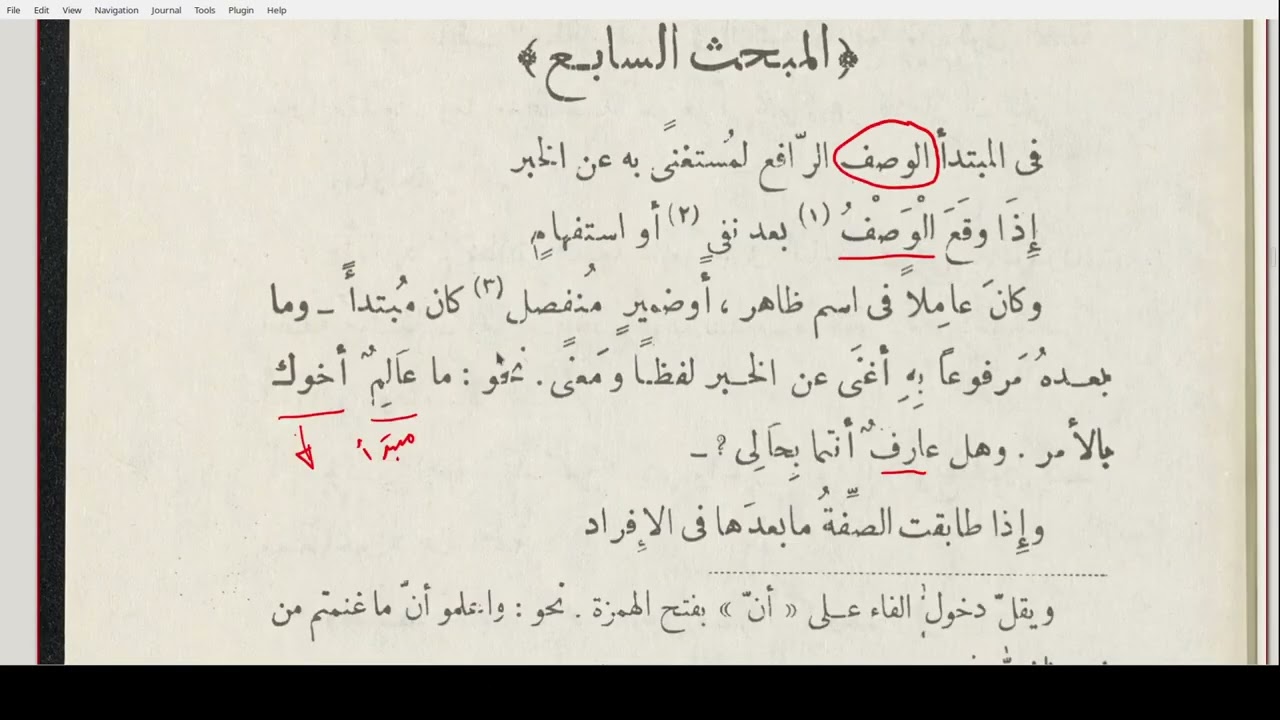 File Edit View Navigation Journal Tools Plugin Help
﴿المبحث السابع﴾
فى المبتدأ الوصف الرّافع لمُستغنىً به عن الخبر
إِذَا وقَعَ الْوَصْفُ (١) بعد نفىٍ (٢) أو استفهامٍ
وكانَ عامِلاً فى اسم ظاهر ، أو ضميرٍ مُنفصل (٣) كان مُبتدأً ــ وما
بعـدهُ مَرفوعاً بِهِ أغنَى عن الخـبر لفظـاً ومَعنًى . نحو : ما عَالِمٌ أخوك
مبتدأ
بالأمر . وهل عارِفٌ أنتما بِحَالِى ؟ ــ
وإِذا طابقت الصِّفةُ ما بعدَها فى الإِفراد
ويقلّ دخول الفاء عـلى « أنّ » بفتح الهمزة . نحو : واعلمو أنّ ما غنمتم من